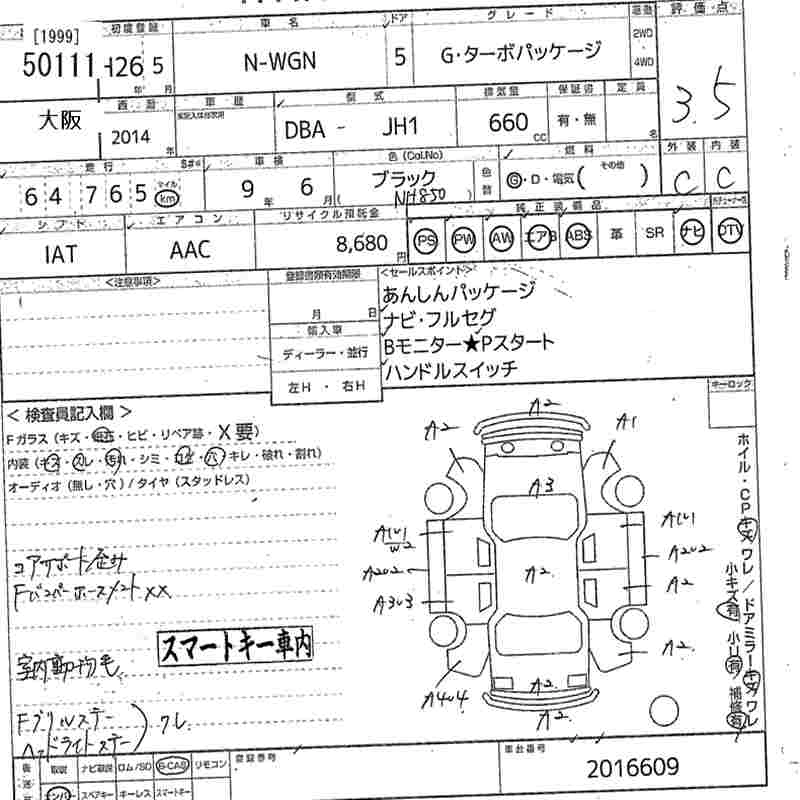 [1999]
50111
大阪
初度登録
H26 5
年 月
車名
N-WGN
ドア
5
グレード
G・ターボパッケージ
駆動
2WD
・
4WD
評価点
3.5
西暦
2014
年
車歴
型式
DBA - JH1
排気量
660
CC
保証書
有・無
定員
名
走行
S#
64 765
マイル
km
車検
9 年 6 月
色(Col.No)
ブラック
(NH850)
色替
燃料
G・D・電気( その他 )
外装
C
内装
C
シフト
IAT
エアコン
AAC
リサイクル預託金
8,680
円
純正装備品
PS PW AW エアB ABS 革 SR ナビ DTV
<注意事項>
登録書類有効期限
月 日
輸入車
ディーラー・並行
左H ・ 右H
<セールスポイント>
あんしんパッケージ
ナビ・フルセグ
Bモニター★Pスタート
ハンドルスイッチ
キーロック
<検査員記入欄>
Fガラス(キズ・飛石・ヒビ・リペア跡・X要)
内装(キズ・スレ・汚れ・シミ・コゲ・穴・キレ・破れ・割れ)
オーディオ(無し・穴)/タイヤ(スタッドレス)
コアサポート歪み
Fバンパーホースメント XX
スマートキー車内
室内動物毛
Fグリルステー
ヘッドライトステー
ワレ
A2
A2
A1
A3
A1U1
W2
A1U1
A2U2
A2U2
A2
A2
A3U3
A2
A4U4
A2
A2
ホイル・CPキズワレ/ドアミラーキズワレ
小キズ有 小U有 補修有
取説 ナビ取説 ロム/SD B-CAS リモコン
ナンバー スペアキー キーレス スマートキー
登録番号
車台番号
2016609